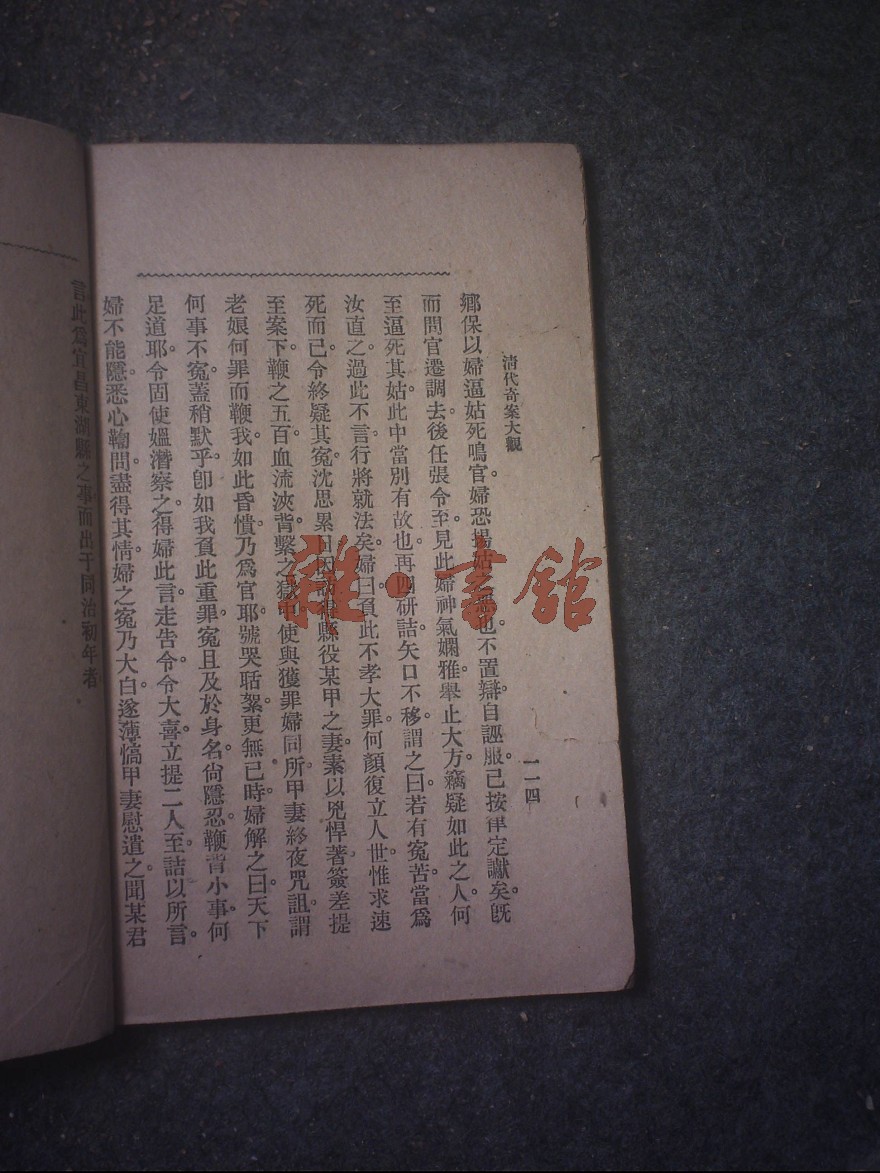 清代奇案大觀
一一四
鄉保以婦逼姑死鳴官。婦恐揚姑之也。不置辯。自誣服。已按律定讞矣。旣
而問官遷調去。後任張令至。見此婦神氣嫻雅。舉止大方。竊疑如此之人。何
至逼死其姑。此中當別有故也。再四研詰。矢口不移。謂之曰。若有冤苦。當爲
汝直之。過此不言。行將就法矣。婦曰。負此不孝大罪。何顏復立人世。惟求速
死而已。令終疑其冤。沈思累日。因縣役某甲之妻。素以兇悍著。簽差提
至案下。鞭之五百。血流浹背。繫之獄中。使與獲罪婦同所。甲妻終夜咒詛。謂
老娘何罪而鞭我。如此昏憒。乃爲官耶。號哭聒絮。更無已時。婦解之曰。天下
何事不冤。蓋稍默乎。卽如我負此重罪。冤且及於身名。尙隱忍。鞭背小事。何
足道耶。令固使媼潛察之。得婦此言。走告令。令大喜。立提二人至。詰以所言。
婦不能隱。悉心鞫問。盡得其情。婦之冤乃大白。遂薄犒甲妻慰遣之。聞某君
言此爲宜昌東湖縣之事。而出于同治初年者。
雜·書館